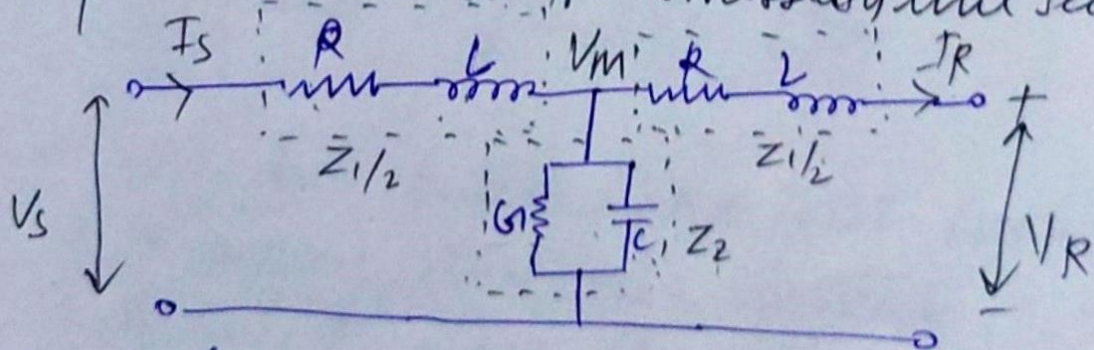 Is R L Vm R L IR +
Z1/2 Z1/2
Vs G C Z2 VR
-